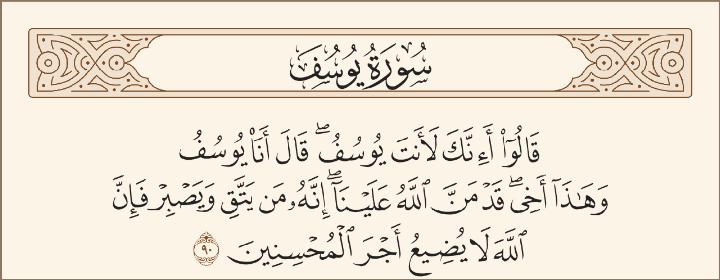 سُورَةُ يُوسُفَ
قَالُوٓا۟ أَءِنَّكَ لَأَنتَ يُوسُفُ ۖ قَالَ أَنَا۠ يُوسُفُ
وَهَـٰذَآ أَخِى ۖ قَدْ مَنَّ ٱللَّهُ عَلَيْنَآ ۖ إِنَّهُۥ مَن يَتَّقِ وَيَصْبِرْ فَإِنَّ
ٱللَّهَ لَا يُضِيعُ أَجْرَ ٱلْمُحْسِنِينَ ٩٠